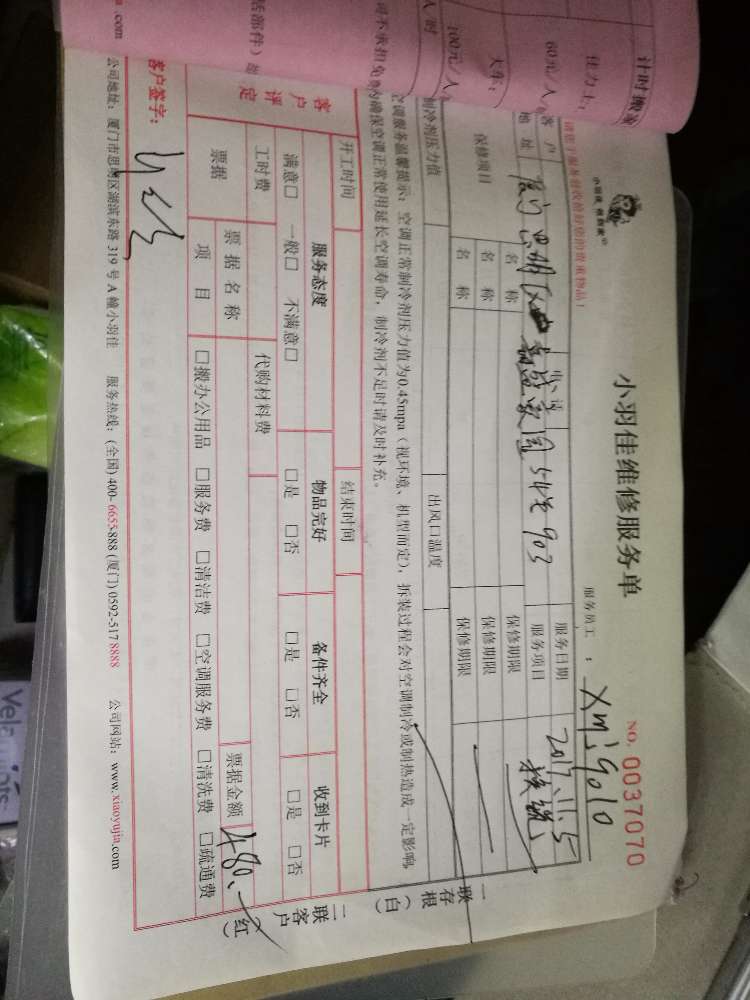 计时搬家
佳力士:
大车:
60元/人
100元/人
小羽佳 很到家
小羽佳维修服务单
NO. 0037070
服务员工: xmjg010
请您于服务前收检好您的贵重物品!
客户
服务日期 2017.11.5
地址 厦门思明区 嘉盛家园54号903
服务项目
保修项目
名称 保修期限
名称 保修期限
名称 保修期限
制冷剂压力值 出风口温度
空调服务温馨提示: 空调正常制冷剂压力值为0.45mpa(视环境、机型而定), 拆装过程会对空调制冷或制热造成一定影响,
确保空调正常使用延长空调寿命, 制冷剂不足时请及时补充。
开工时间 结束时间
客户评定
服务态度 物品完好 备件齐全 收到卡片
满意□ 一般□ 不满意□ □是 □否 □是 □否 □是 □否
工时费 代购材料费
票据
票据名称 票据金额 480.
项目 □搬办公用品 □服务费 □清洁费 □空调服务费 □清洗费 □疏通费
一联存根(白)
二联客户(红)
客户签字:
公司地址: 厦门市思明区湖滨东路 319 号 A 幢小羽佳 服务热线: (全国) 400-6655-888 (厦门) 0592-517 8888 公司网站: www.xiaoyujia.com
.com